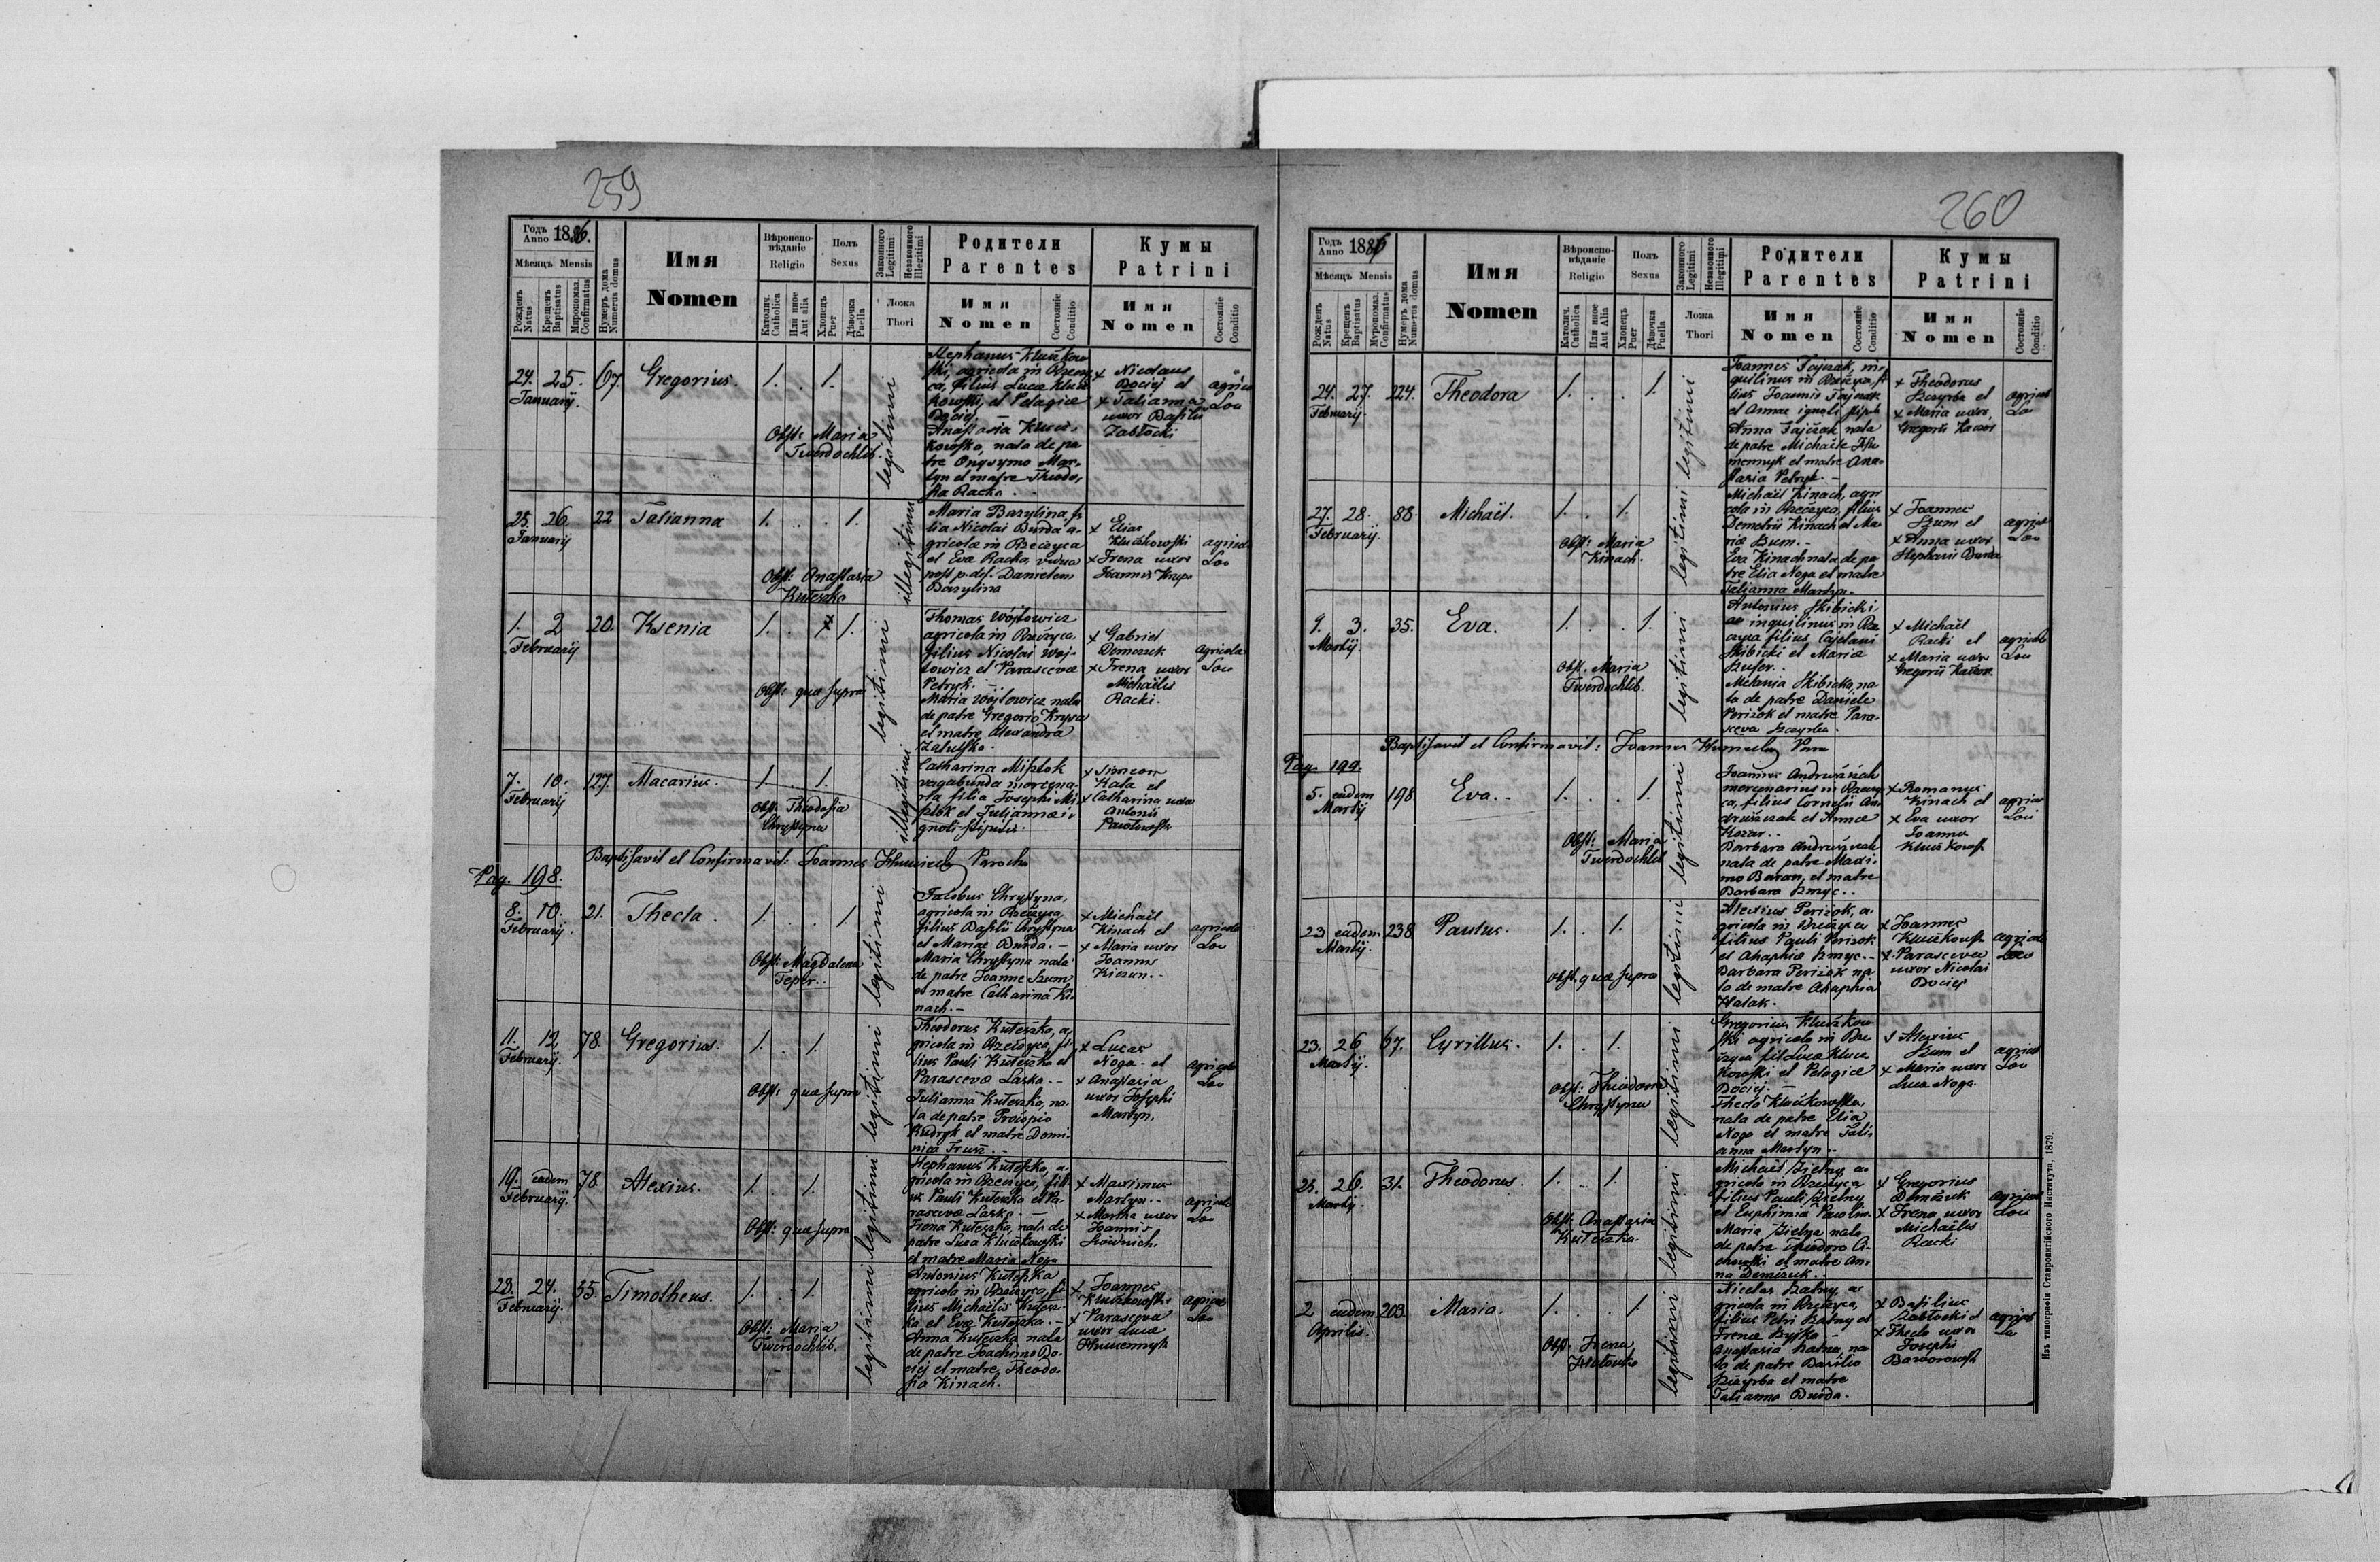 259
Годъ Anno 1886.
Мѣсяцъ Mensis
Рожденъ Natus
Крещенъ Baptisatus
Миропомаз. Confirmatus
Нумеръ дома Numerus domus
Имя
Nomen
Вѣроисповѣданіе
Religio
Католич. Catholica
Или иное Aut alia
Полъ
Sexus
Хлопецъ Puer
Дѣвочка Puella
Законного Legitimi
Незаконного Illegitimi
Ложа
Thori
Родители
Parentes
Имя
Nomen
Состояніе Conditio
Кумы
Patrini
Имя
Nomen
Состояніе Conditio
24. 25. 67. Gregorius. 1. 1.
Januarij.
Obst: Maria
Twerdochlib.
legitimi
Stephanus Kluczkow
ski, agricola in Rzeczy
ca, filius Lucae Klucz
kowski, et Pelagiae
Dociej. —
Anastasia Klucz
kowska, nata de pa
tre Onysymo Mar
tyn et matre Theodo
sia Racka.
+ Nicolaus
Dociej et
+ Tatianna
uxor Basilii
Zabłocki
agrico
lae
25. 26. 22 Tatianna 1. 1.
Januarij
Obst: Anastasia
Kuteszka
illegitimi
Maria Bazylina, fi
lia Nicolai Burda a
gricolae in Rzeczyca
et Eva Racka, vidua
post p. def. Danielem
Bazylina
+ Elias
Kluczkowski
+ Irena uxor
Joannis
agricol
1. 2 20. Ksenia 1. 1.
Februarij
Obst: quae supra
legitimi
Thomas Wójtowicz
agricola in Rzeczyca
filius Nicolai Woj
towicz et Parascevae
Petryk. —
Maria Wojtowicz nata
de patre Gregorio Krysa
et matre Alexandra
+ Gabriel
Demczuk
+ Irena uxor
Michaëlis
Racki.
agricola
7. 10. 127. Macarius. 1. 1.
Februarij
Obst. Theodosia
Chrystyna
illegitimi
Catharina Misztok
vagabunda mercena
ria filia Josephi Mi
sztok et Juliannae i
gnoti stipitis.
+ Simeon
Kala et
+ Catharina uxor
Antonii
Pawłowski
Baptisavit et Confirmavit: Joannes Parochus
Pag. 198.
8. 10. 21. Thecla. 1. 1
Februarij.
Obst: Magdalena
Teper.
legitimi
Jacobus Chrystyna,
agricola in Rzeczyca,
filius Basilii Chrystyna
et Mariae Burda. —
Maria Chrystyna nata
de patre Joanne Szum
et matre Catharina Ki
nach. —
+ Michaël
Kinach et
+ Maria uxor
Joannis
Kiczun. —
agricola
11. 12. 78. Gregorius. 1. 1.
Februarij.
Obst: quae supra
legitimi
Theodorus Kuteszka, a
gricola in Rzeczyca, fi
lius Pauli Kuteszka et
Parascevae Laska. —
Julianna Kuteszka, na
ta de patre Procopio
Kudryk et matre Domi
nica
+ Lucas
Noga et
+ Anastasia
uxor Josephi
Martyn.
agricol
19. eadem 78 Alexius. 1. 1.
Februarij.
Obst: quae supra
legitimi
Stephanus Kuteszka, a
gricola in Rzeczyca, fili
us Pauli Kuteszka et Pa
rascevae Laska. —
Irena Kuteszka, nata de
patre Luca Kluczkowski
et matre Maria Noga
+ Maximus
Martyn.
+ Martha uxor
Joannis
agricol
23. 24. 35. Timotheus. 1. 1.
Februarij.
Obst: Maria
Twerdochlib.
legitimi
Antonius Kuteszka
agricola in Rzeczyca, fi
lius Michaëlis Kutesz
ka et Eva Kuteszka. —
Anna Kuteszka nata
de patre Joachimo Do
ciej et matre Theodo
sia Kinach.
+ Joannes
Kluczkowski
+ Parasceva
uxor Lucae
Humennyk
agricol
260
Годъ Anno 1886
Мѣсяцъ Mensis
Рожденъ Natus
Крещенъ Baptisatus
Муропомаз. Confirmatus
Нумеръ дома Numerus domus
Имя
Nomen
Вѣроисповѣданіе
Religio
Католич. Catholica
Или иное Aut Alia
Полъ
Sexus
Хлопецъ Puer
Дѣвочка Puella
Законного Legitimi
Незаконного Illegitimi
Ложа
Thori
Родители
Parentes
Имя
Nomen
Состояніе Conditio
Кумы
Patrini
Имя
Nomen
Состояніе Conditio
24. 27. 224. Theodora 1. 1.
Februarij
legitimi
Joannes Fajczak, in
quilinus in Rzeczyca, fi
lius Joannis Fajczak
et Annae ignoti stipitis
Anna Fajczak nata
de patre Michaële Hu
mennyk et matre Ana
stasia Petryk. —
+ Theodorus
Szczyrba et
+ Maria uxor
Gregorii Kaczor
agricol
27. 28. 88. Michaël. 1. 1.
Februarij.
Obst: Maria
Kinach.
legitimi
Michaël Kinach, agri
cola in Rzeczyca, filius
Demetrii Kinach et Ma
riae Bum. —
Eva Kinach nata de pa
tre Elia Noga et matre
Tatianna Martyn.
+ Joannes
Szum et
+ Anna uxor
Stephani Burda
agricol
1. 3. 35. Eva. 1. 1.
Martij.
Obst. Maria
Twerdochlib.
legitimi
Antonius Skibicki,
inquilinus in Rze
czyca filius Cajetani
Skibicki et Mariae
Melania Skibicka, na
ta de patre Daniele
Perizok et matre Para
sceva Szczyrba.
+ Michaël
Racki et
+ Maria uxor
Gregorii Kaczor.
agricol
Baptisavit et Confirmavit: Joannes
Pag. 199.
5. eadem 198. Eva. 1. 1.
Martij
Obst: Maria
Twerdochlib
legitimi
Joannes Andruszczak
mercenarius in Rzeczy
ca, filius Cornelii An
druszczak et Annae
Kozar.
Barbara Andruszczak
nata de patre Maxi
mo Baran, et matre
Barbara Hmyc.
+ Romanus
Kinach et
+ Eva uxor
Joannis
Kluczkowsk
agricol
23 eadem 238 Paulus. 1. 1.
Martij.
Obst. quae supra
legitimi
Alexius Perizok, a
gricola in Rzeczyca
filius Pauli Perizok
et Ahaphiae Hmyc. —
Barbara Perizok na
ta de matre Ahaphia
Halak.
+ Joannes
Kluczkowsk
+ Parasceva
uxor Nicolai
Dociej
agricol
23. 26 67. Cyrillus. 1. 1.
Martij.
Obst: Theodosia
Chrystyna
legitimi
Gregorius Kluczkow
ski agricola in Rze
czyca fil Lucae Klucz
kowski et Pelagiae
Dociej. —
Thecla Kluczkowska,
nata de patre Elia
Noga et matre Tati
anna Martyn. —
+ Alexius
Szum et
+ Maria uxor
Lucae Noga.
agricol
25. 26. 31. Theodorus. 1. 1.
Martij.
Obst: Anastasia
Kuteszka.
legitimi
Michaël Zielny, a
gricola in Rzeczyca
filius Pauli Zielny
et Euphimia Pawlin.
Maria Zielna nata
de patre Theodoro Ci
chowski et matre An
na Demczuk.
+ Gregorius
Demczuk
+ Irena uxor
Michaëlis
Racki
agricol
2 eadem 203 Maria. 1. 1.
Aprilis.
Obst: Irena
legitimi
Nicolas Batny, a
gricola in Rzeczyca,
filius Petri Batny et
Irenae
Anastasia Batna, na
ta de patre Basilio
Szczyrba et matre
Tatianna Burda.
+ Basilius
Zabłocki et
+ Thecla uxor
Josephi
agricol
Изъ типографіи Ставропигійского Института, 1879.